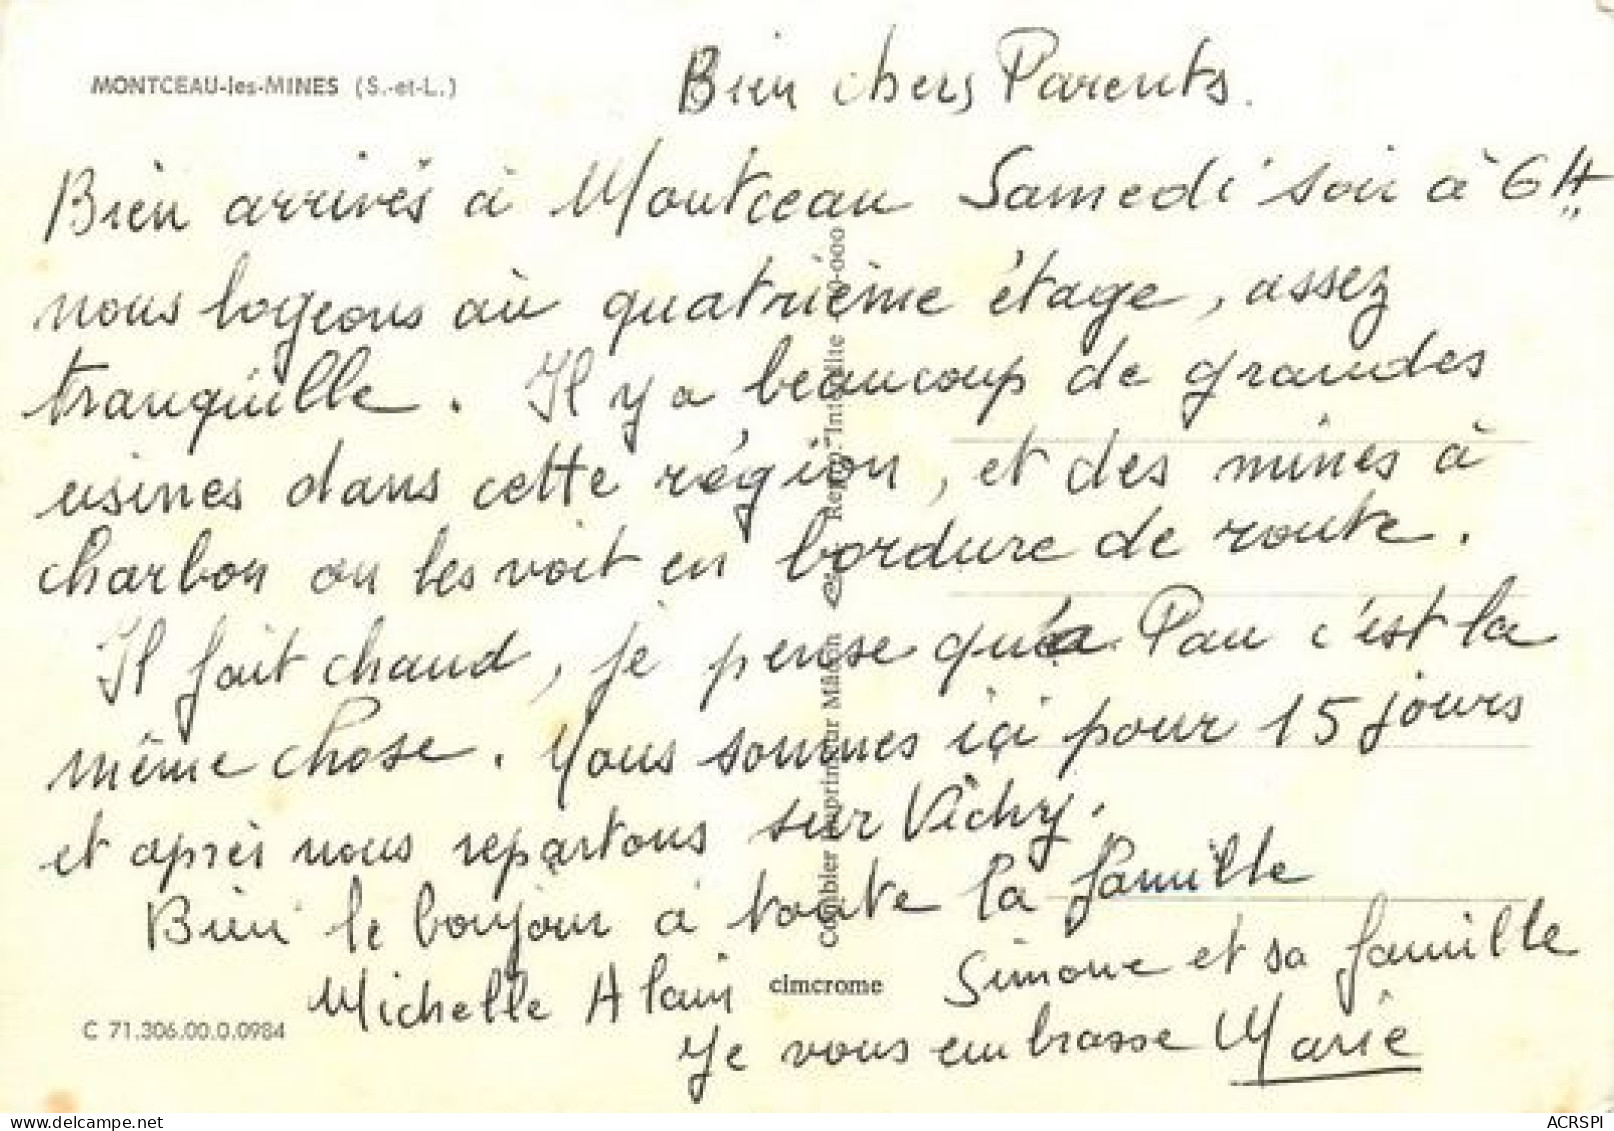 MONTCEAU-les-MINES (S.-et-L.)
Bien chers Parents.
Bien arrivés à Montceau Samedi soir à 6H
nous logeons au quatrième étage, assez
tranquille. Il y a beaucoup de grandes
usines dans cette région, et des mines à
charbon on les voit en bordure de route.
Il fait chaud, je pense qu'a Pau c'est la
même chose. Nous sommes içi pour 15 jours
et après nous repartons sur Vichy.
Bien le bonjour a toute la famille
Michelle Alain Simone et sa famille
Je vous embrasse Marie
Combier Imprimeur Mâcon
cimcrome
C 71.306.00.0.0984
ACRSPI